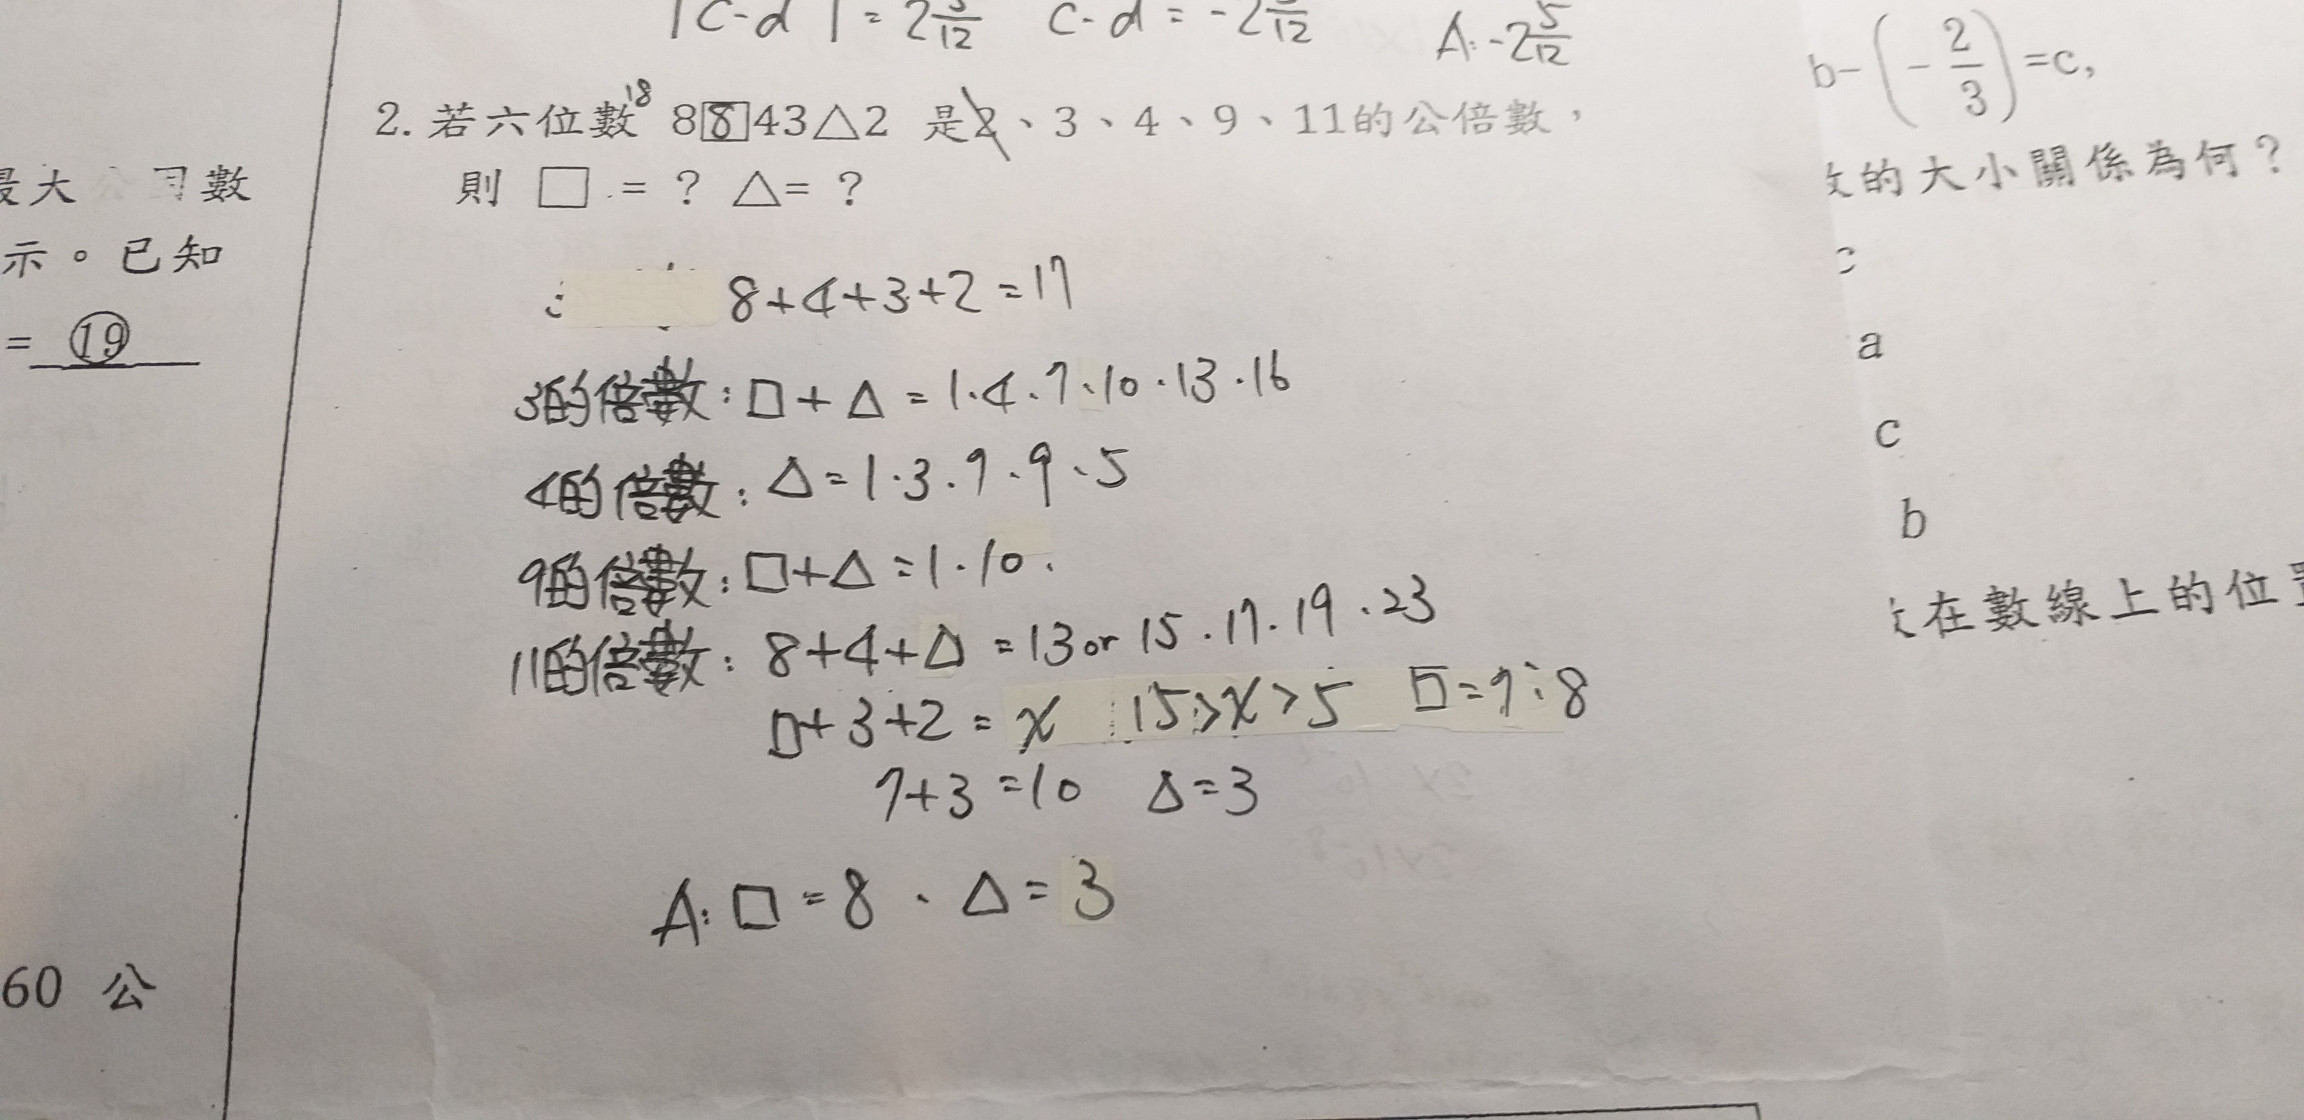 |c-d|=2 /12 c-d=-2 /12 A:-2 5/12
2.若六位數 18 8[8]43△2 是2、3、4、9、11的公倍數，
則 □=? △=?
8+4+3+2=17
3的倍數:□+△=1.4.7、10.13.16
4的倍數:△=1.3.7.9、5
9的倍數:□+△=1.10.
11的倍數:8+4+△=13or 15.17.19.23
□+3+2=x 15>x>5 □=7:8
7+3=10 △=3
A:□=8、△=3
數
示。已知
=⑲
60 公
b-(-2/3)=c,
的大小關係為何?
c
a
c
b
在數線上的位